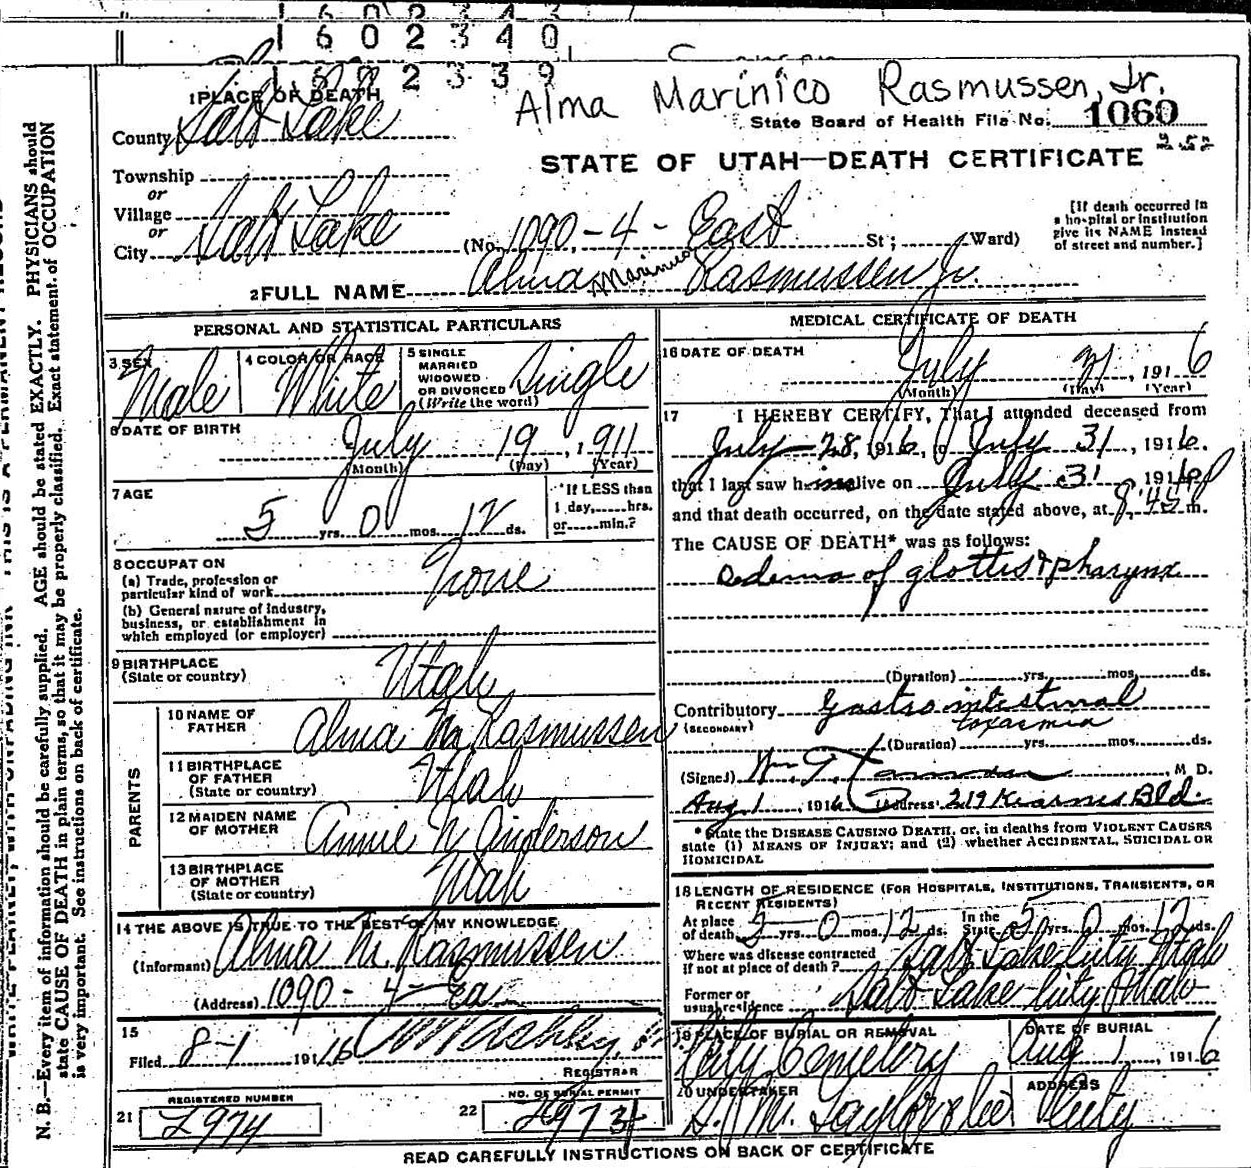 1602343
1602340
1602339
Alma Marinico Rasmussen, Jr.
1 PLACE OF DEATH
County Salt Lake
State Board of Health File No. 1060
STATE OF UTAH—DEATH CERTIFICATE
Township
or
Village
or
City Salt Lake (No. 1090 - 4 - East St; Ward)
[If death occurred in
a hospital or institution
give its NAME instead
of street and number.]
2 FULL NAME Alma Marinico Rasmussen Jr.
PERSONAL AND STATISTICAL PARTICULARS
3 SEX Male
4 COLOR OR RACE White
5 SINGLE
MARRIED
WIDOWED
OR DIVORCED
(Write the word) Single
6 DATE OF BIRTH
July 19, 1911
(Month) (Day) (Year)
7 AGE
5 yrs. 0 mos. 12 ds.
If LESS than
1 day, hrs.
or min.?
8 OCCUPATION
(a) Trade, profession or
particular kind of work None
(b) General nature of industry,
business, or establishment in
which employed (or employer)
9 BIRTHPLACE
(State or country) Utah
PARENTS
10 NAME OF
FATHER Alma M Rasmussen
11 BIRTHPLACE
OF FATHER
(State or country) Utah
12 MAIDEN NAME
OF MOTHER Annie N Anderson
13 BIRTHPLACE
OF MOTHER
(State or country) Utah
14 THE ABOVE IS TRUE TO THE BEST OF MY KNOWLEDGE
(Informant) Alma M. Rasmussen
(Address) 1090 - 4 - Ea
15
Filed 8-1 1916
REGISTRAR
REGISTERED NUMBER
21 2974
NO. OF BURIAL PERMIT
22 2973
MEDICAL CERTIFICATE OF DEATH
16 DATE OF DEATH
July 31, 1916
(Month) (Day) (Year)
17 I HEREBY CERTIFY, That I attended deceased from
July 28, 1916, to July 31, 1916.
that I last saw h im alive on July 31 1916
and that death occurred, on the date stated above, at m.
The CAUSE OF DEATH* was as follows:
Oedema of glottis & pharynx
(Duration) yrs. mos. ds.
Contributory Gastro intestinal
(SECONDARY) toxaemia
(Duration) yrs. mos. ds.
(Signed) Wm. T. M D.
Aug 1, 1916 (Address) 219 Kearns Bld.
*State the DISEASE CAUSING DEATH, or, in deaths from VIOLENT CAUSES
state (1) MEANS OF INJURY; and (2) whether ACCIDENTAL, SUICIDAL OR
HOMICIDAL
18 LENGTH OF RESIDENCE (FOR HOSPITALS, INSTITUTIONS, TRANSIENTS, OR
RECENT RESIDENTS)
At place
of death 5 yrs. 0 mos. 12 ds. In the
State 5 yrs. 0 mos. 12 ds.
Where was disease contracted
if not at place of death? Salt Lake City Utah
Former or
usual residence Salt Lake City Utah
19 PLACE OF BURIAL OR REMOVAL
City Cemetery
DATE OF BURIAL
Aug 1, 1916
20 UNDERTAKER
S. M. Taylor & Co
ADDRESS
City
READ CAREFULLY INSTRUCTIONS ON BACK OF CERTIFICATE
N. B.—Every item of information should be carefully supplied. AGE should be stated EXACTLY. PHYSICIANS should
state CAUSE OF DEATH in plain terms, so that it may be properly classified. Exact statement of OCCUPATION
is very important. See instructions on back of certificate.